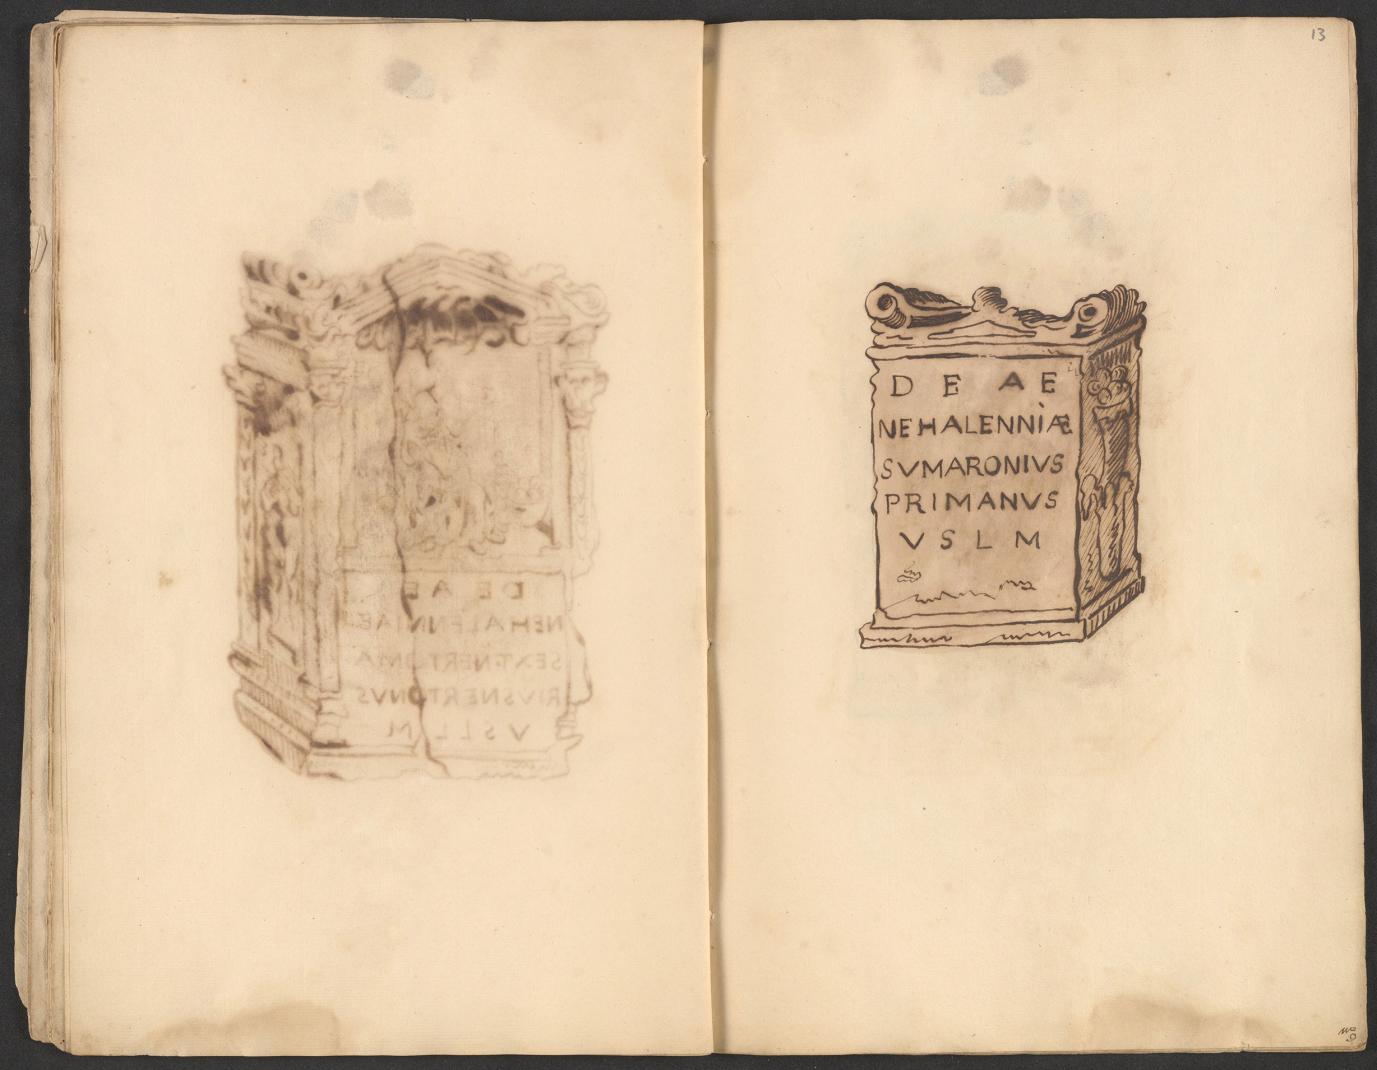 DE AE
NEHALENNIAE
SEXT·NERTOMA
RIUSNERTONVS
V S L L M
13
D E AE
NEHALENNIÆ
SVMARONIVS
PRIMANVS
V S L M